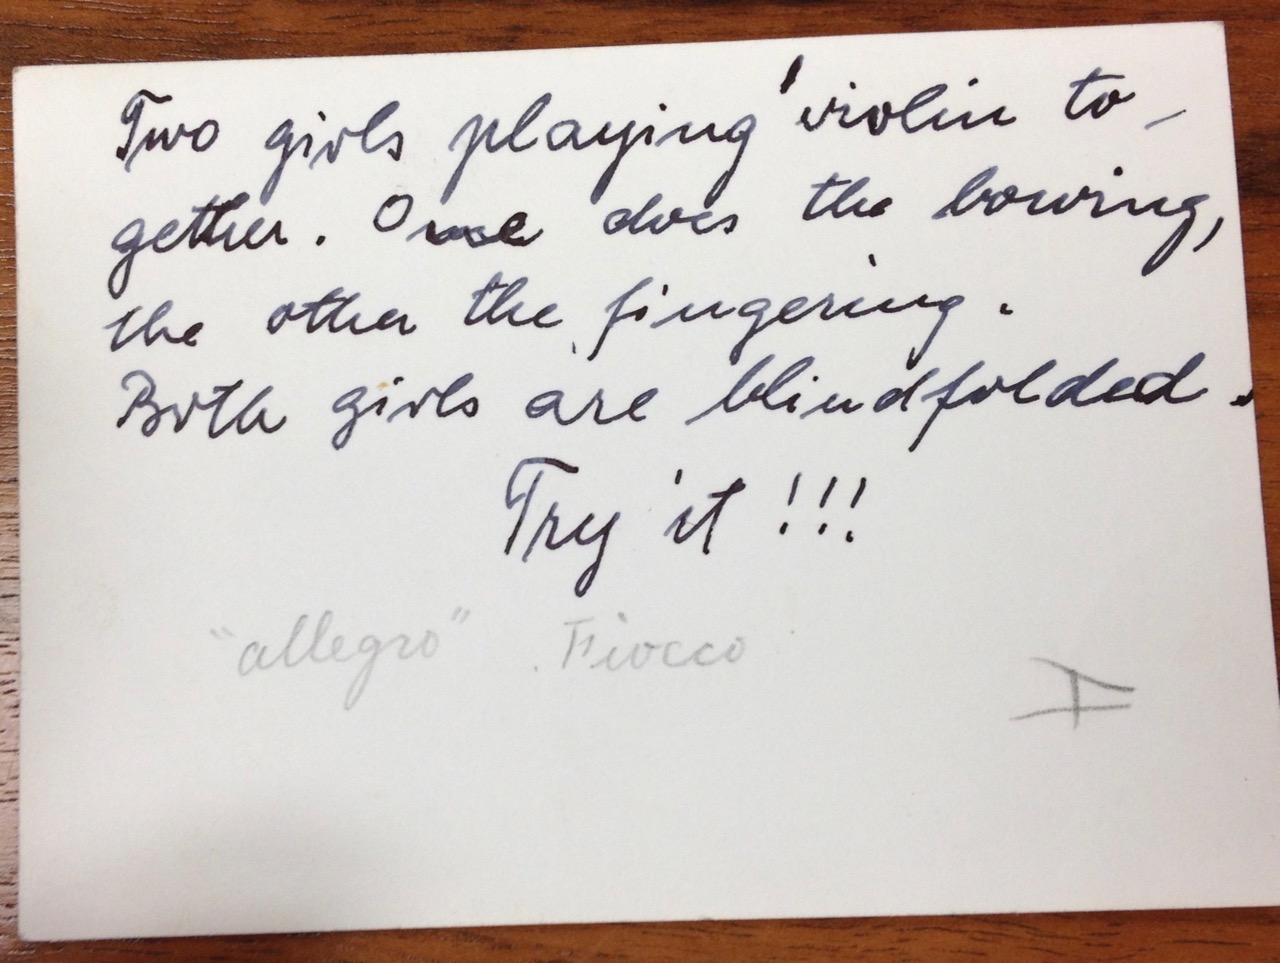 Two girls playing 1 violin to-
gether. One does the bowing,
the other the fingering.
Both girls are blindfolded.
Try it !!!
"allegro" Fiocco